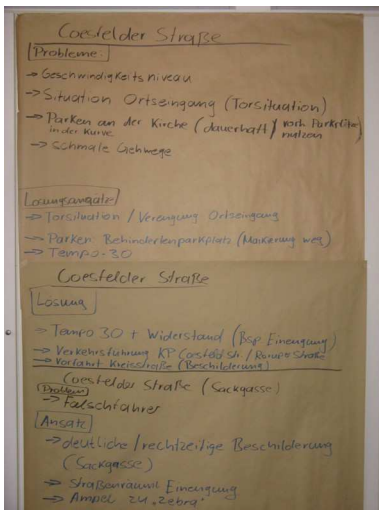 Coesfelder Straße
Probleme:
→ Geschwindigkeitsniveau
→ Situation Ortseingang (Torsituation)
→ Parken an der Kirche (dauerhaft / vorh. Parkplätze
in der Kurve nutzen)
→ schmale Gehwege
Lösungsansätze
→ Torsituation / Verengung Ortseingang
→ Parken: Behindertenparkplatz (Markierung weg)
→ Tempo-30
Coesfelder Straße
Lösung
→ Tempo 30 + Widerstand (Bsp Einengung)
→ Verkehrsführung KP Coesfeld Str. / Straße
→ Vorfahrt Kreisstraße (Beschilderung)
Coesfelder Straße (Sackgasse)
Problem
→ Falschfahrer
Ansatz
→ deutliche / rechtzeitige Beschilderung
(Sackgasse)
→ Straßenräuml. Einengung
→ Ampel zu "Zebra"